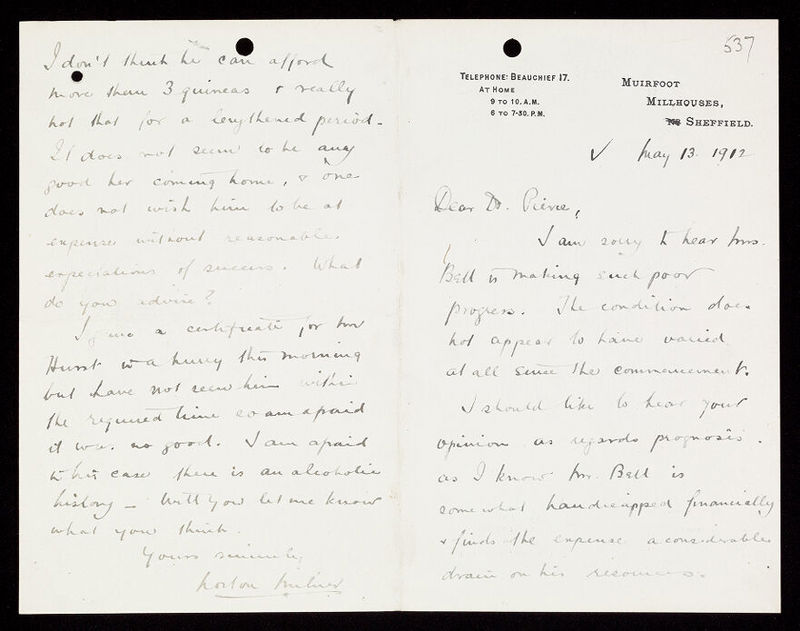 537
TELEPHONE: BEAUCHIEF 17.
AT HOME
9 TO 10. A.M.
6 TO 7-30. P.M.
MUIRFOOT
MILLHOUSES,
SHEFFIELD.
✓ May 13. 1912
Dear Dr. Pierce,
I am sorry to hear Mrs.
Bell is making such poor
progress. The condition does
not appear to have varied
at all since the commencement.
I should like to hear your
opinion as regards prognosis.
as I know Mr. Bell is
somewhat handicapped financially
& finds the expense a considerable
drain on his resources.
I don't think he can afford
more than 3 guineas & really
not that for a lengthened period.
It does not seem to be any
good her coming home, & one
does not wish him to be at
expense without reasonable
expectations of success. What
do you advise?
I gave a certificate for Mr
Hurst in a hurry this morning
but have not seen him within
the required time so am afraid
it was no good. I am afraid
in his case there is an alcoholic
history – Will you let me know
what you think.
Yours sincerely
Milner